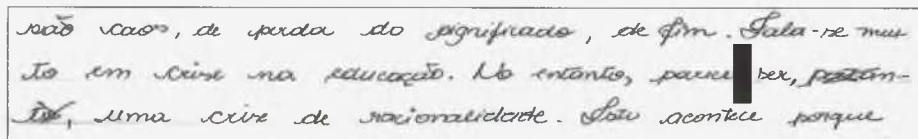 são caos, de perda do significado, de fim. Fala-se mui
to em crise na educação. No entanto, parece ser,
uma crise de racionalidade. Isto acontece porque